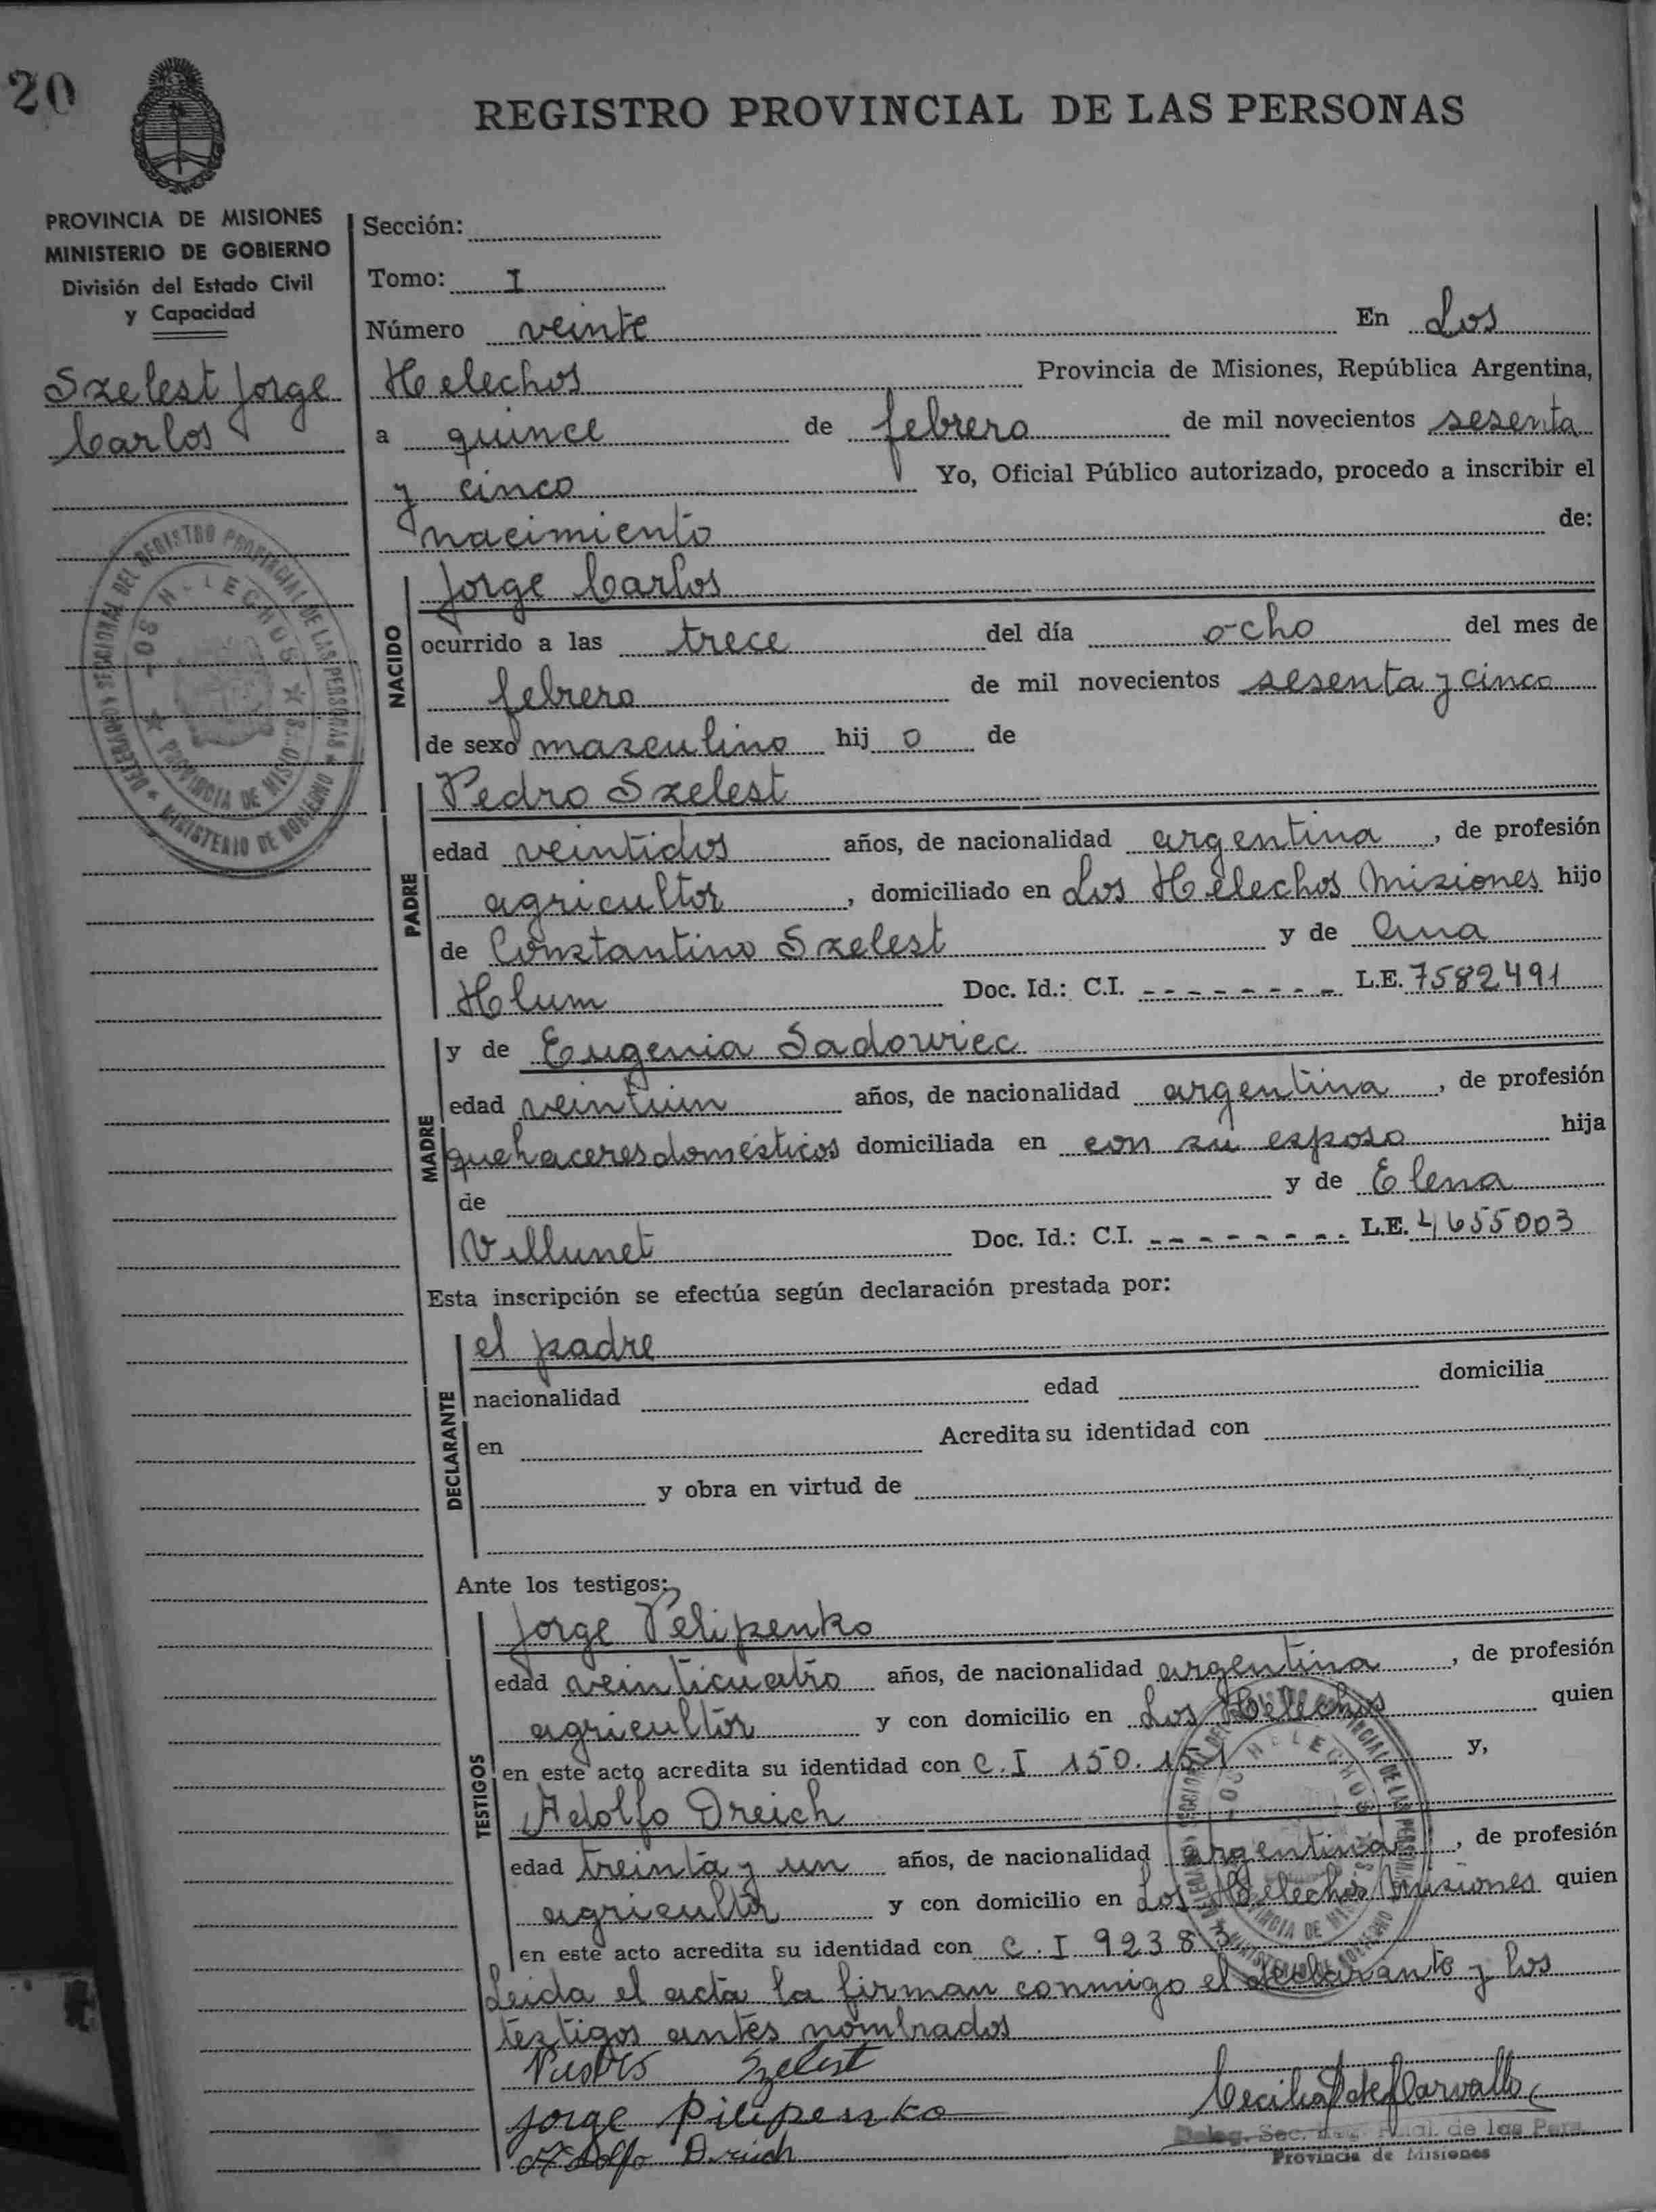 20
REGISTRO PROVINCIAL DE LAS PERSONAS
PROVINCIA DE MISIONES
MINISTERIO DE GOBIERNO
División del Estado Civil
y Capacidad
Szelest Jorge
Carlos
Sección:
Tomo: I
Número veinte En Los
Helechos Provincia de Misiones, República Argentina,
a quince de febrero de mil novecientos sesenta
y cinco Yo, Oficial Público autorizado, procedo a inscribir el
nacimiento de:
NACIDO
Jorge Carlos
ocurrido a las trece del día ocho del mes de
febrero de mil novecientos sesenta y cinco
de sexo masculino hij o de
PADRE
Pedro Szelest
edad veintidos años, de nacionalidad argentina, de profesión
agricultor, domiciliado en Los Helechos Misiones hijo
de Constantino Szelest y de Ana
Hlum Doc. Id.: C.I. - - - - - - - - L.E. 7582491
MADRE
y de Eugenia Sadowiec
edad veintiun años, de nacionalidad argentina, de profesión
quehaceres domésticos domiciliada en con su esposo hija
de y de Elena
Villunet Doc. Id.: C.I. - - - - - - - - L.E. 4655003
Esta inscripción se efectúa según declaración prestada por:
DECLARANTE
el padre
nacionalidad edad domicilia
en Acredita su identidad con
y obra en virtud de
Ante los testigos:
TESTIGOS
Jorge Pelipenko
edad veinticuatro años, de nacionalidad argentina, de profesión
agricultor y con domicilio en Los Helechos quien
en este acto acredita su identidad con C.I 150.151 y,
Adolfo Dreich
edad treinta y un años, de nacionalidad argentina, de profesión
agricultor y con domicilio en Los Helechos Misiones quien
en este acto acredita su identidad con C.I 92383
Leida el acta la firman conmigo el declarante y los
testigos antes nombrados
Szelest
Jorge Pilipenko
Adolfo Drich
Cecilia de Carvallo
Deleg. Sec. de las Pers.
Provincia de Misiones